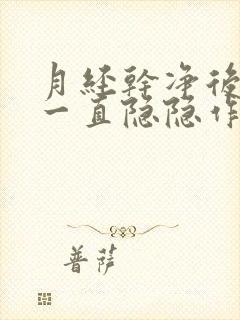 月经幹净後
一直隐隐作
普萨